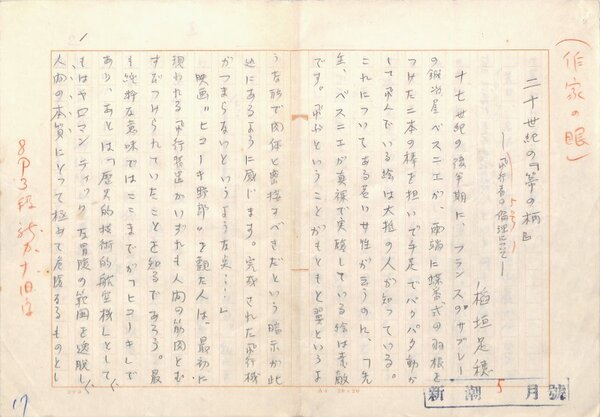 (作家の眼)
二十世紀の「箒の柄」
―飛行者の倫理について―
稲垣足穂
十七世紀の後半期に、フランスのサブレー
の鍛冶屋ベスニエが、両端に蝶番式の羽根を
つけた二本の棒を担いで手足でバタバタ動か
して飛んでいる絵は大抵の人が知っている。
これについてある若い女性が云うのに、「先
生、ベスニエが真裸で実験している絵は素敵
です。飛ぶということがもともと翼というよ
うな形で肉体と密接すべきだという暗示が此
込にあるように感じます。完成された飛行機
がつまらないというような矣……」
映画"ヒコーキ野郎"を観た人は、最初に
現われる飛行装置がいずれも人間の筋肉とむ
すびつけられていたことを知るであろう。最
も純粋な意味ではここまでが「ヒコーキ」で
あり、あとは「歴史的技術的航空機」として、
もはやロマンティックな冒険の範囲を逸脱し、
人間の本質にとって極めて危険するものとし
8P3段
新潮5月號
17